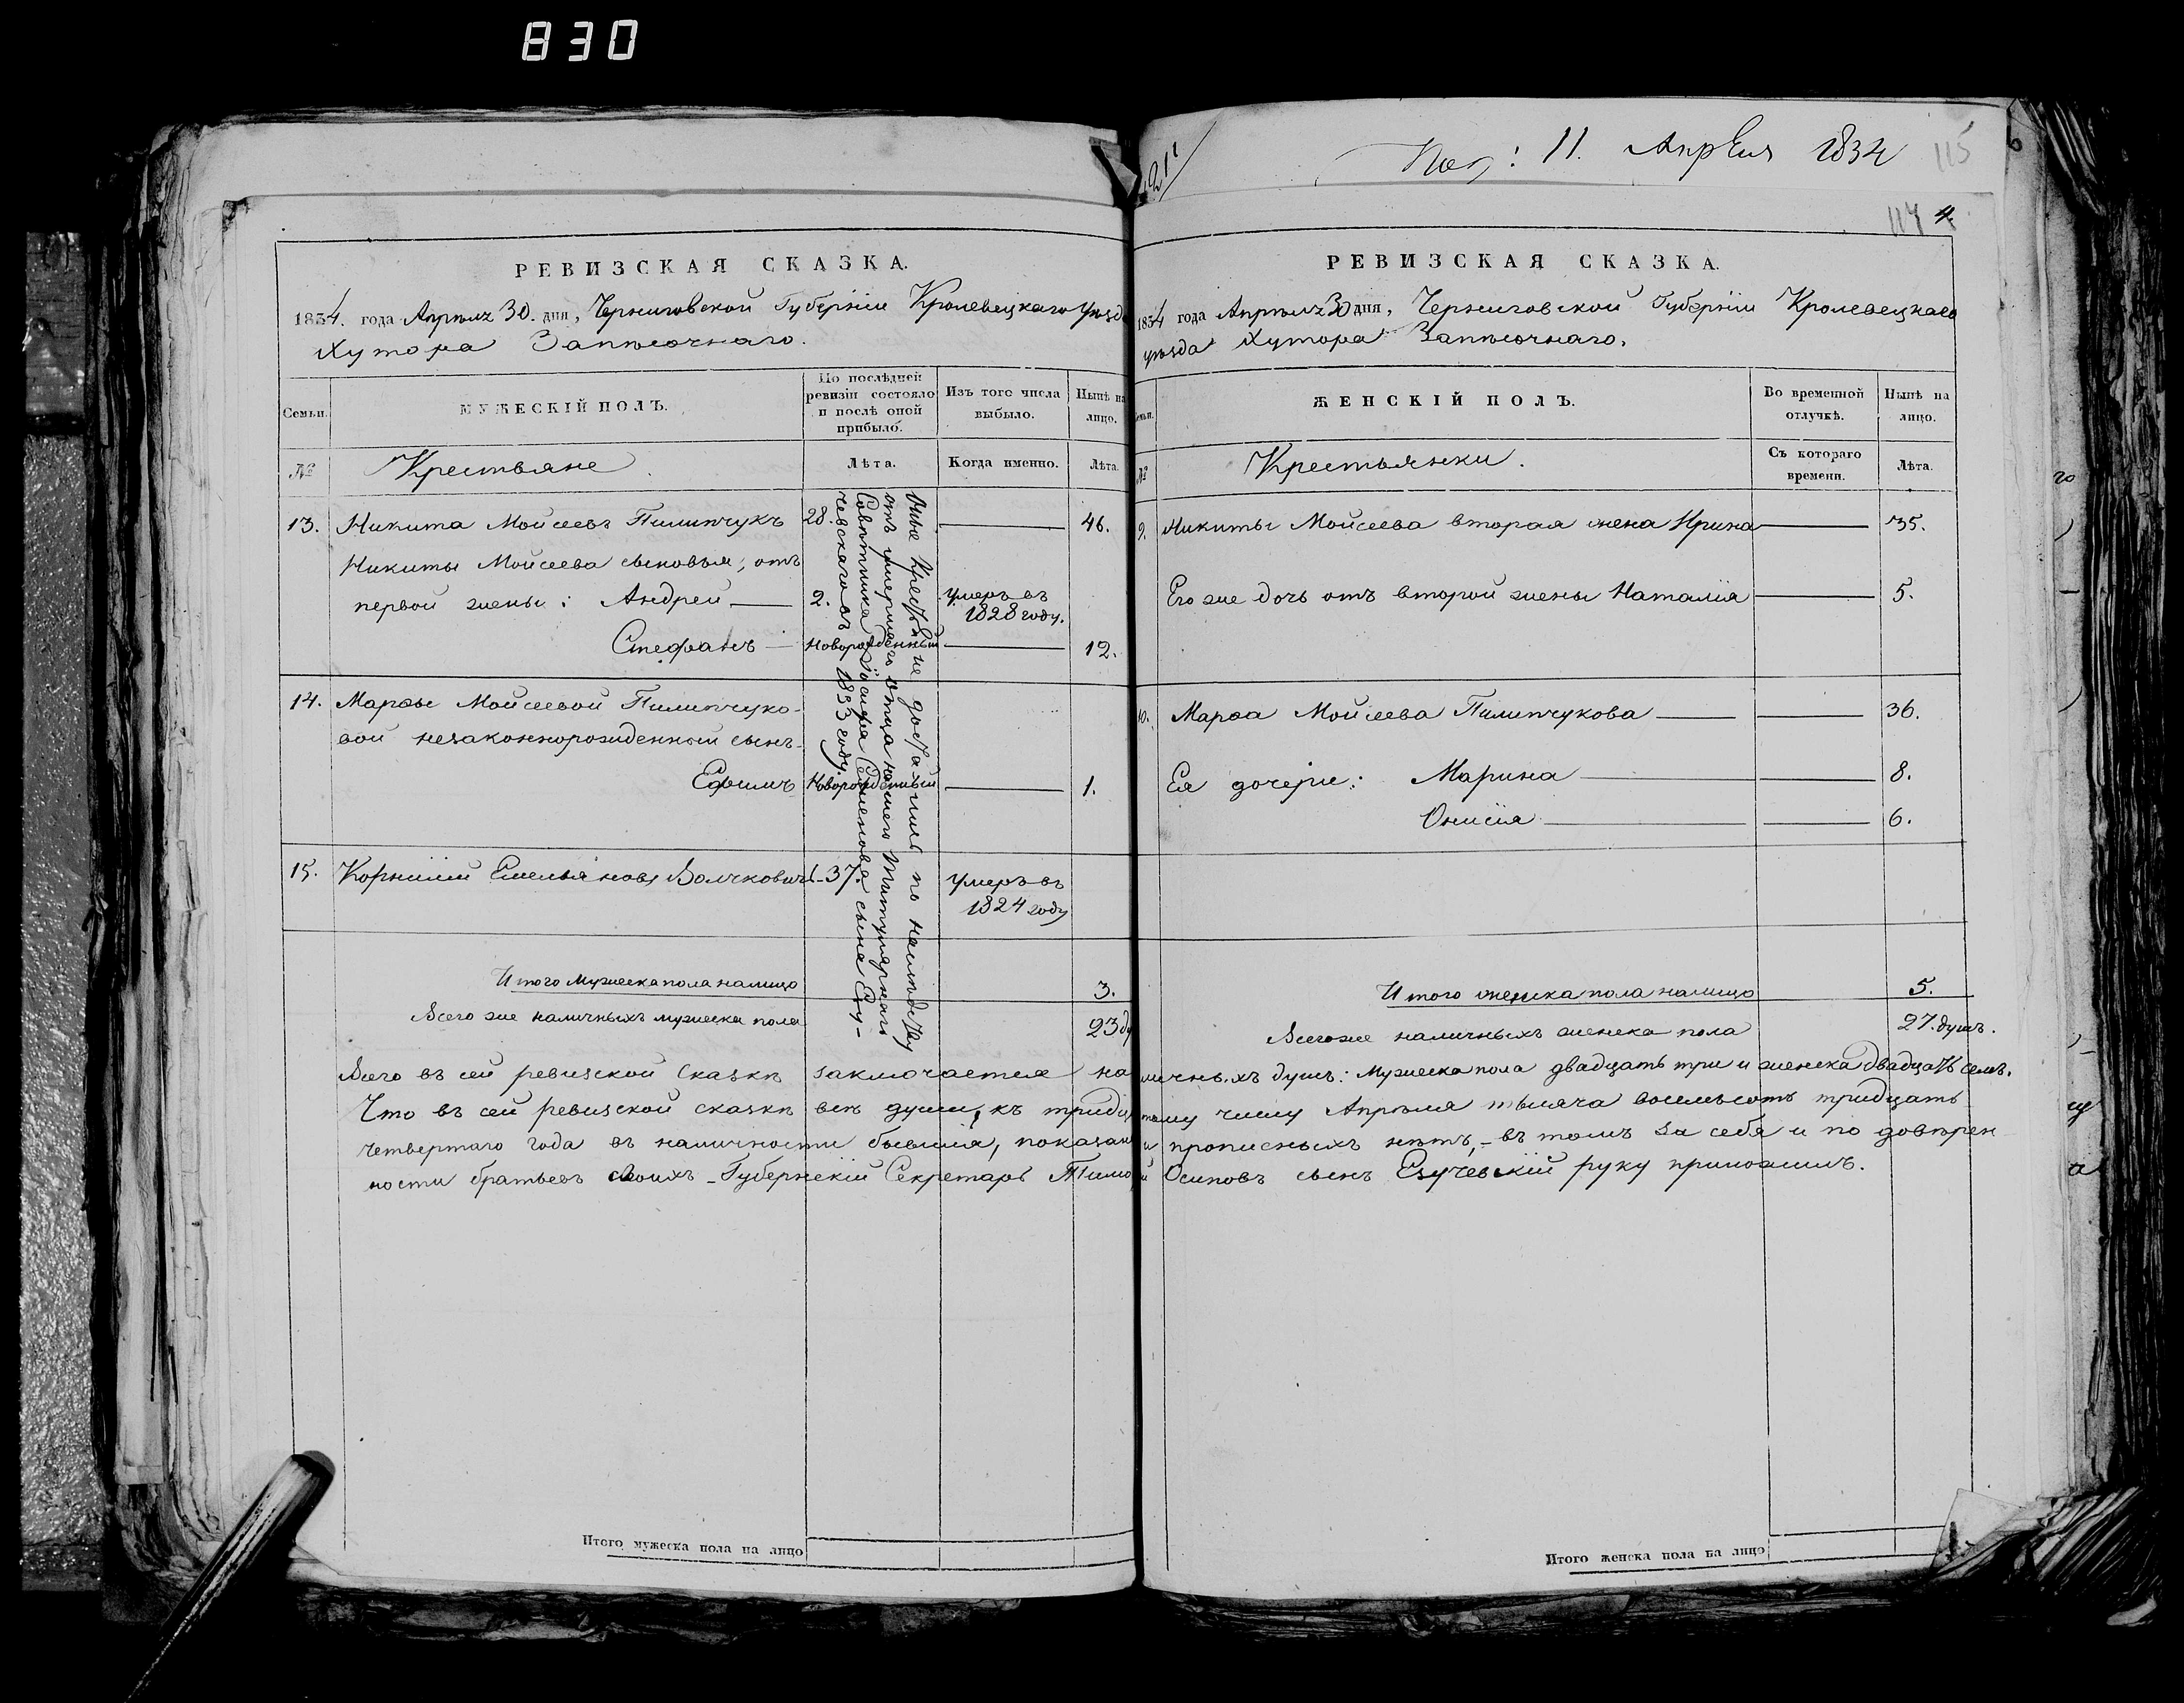 830
Пол: 11. Апрѣля 1834
115
114 4.
РЕВИЗСКАЯ СКАЗКА.
1834. года Апрѣля 30. дня, Черниговской Губерніи Кролевецкаго уѣзда
Хутора Заплюочнаго.
Семьи.
МУЖЕСКІЙ ПОЛЪ.
По послѣдней
ревизіи состояло
и послѣ оной
прибыло.
Изъ того числа
выбыло.
Нынѣ на
лицо.
№
Крестьяне
Лѣта.
Когда именно.
Лѣта.
13. Никита Мойсеевъ Пилипчукъ 28. 46.
Никиты Мойсеева сыновья, отъ
первой жены: Андрей 2. умеръ въ
1828 году.
Стефанъ новорожденный 12.
14. Марѳы Мойсеевой Пилипчуко-
вой незаконнорожденный сынъ
Ефимъ Новорожденный 1.
15. Корнилій Емельяновъ Волчковичъ 37. умеръ въ
1824 году
Оные Крестьяне достались по наслѣдству
отъ умершаго отца нашего Титулярнаго
Совѣтника Іосифа Семенова сына Езу-
чевскаго въ 1833 году
Итого мужеска пола налицо 3.
Всего же наличныхъ мужеска пола 23 ду
РЕВИЗСКАЯ СКАЗКА.
1834 года Апрѣля 30 дня, Черниговской Губерніи Кролевецкаго
уѣзда Хутора
№
ЖЕНСКІЙ ПОЛЪ.
Во временной
отлучкѣ.
Нынѣ на
лицо.
Крестьянки.
Съ котораго
времени.
Лѣта.
9. Никиты Мойсеева вторая жена Ирина 35.
Его же дочь отъ второй жены Наталія 5.
10. Марѳа Мойсеева Пилипчукова 36.
Ея дочери: Марина 8.
Онисія 6.
Итого женска пола налицо 5.
Всего же наличныхъ женска пола 27. душъ.
Всего въ сей ревизской сказкѣ заключается наличныхъ душъ: Мужеска пола двадцать три и женска двадцать семь.
Что въ сей ревизской сказкѣ всѣ души, къ тридцатому числу Апрѣля тысяча восемьсотъ тридцать
четвертаго года въ наличности бывшія, показаны и прописныхъ нѣтъ, - въ томъ за себя и по довѣрен
ности братьевъ своихъ - Губернскій Секретарь Тимофей Осиповъ сынъ Езучевскій руку приложилъ.
Итого мужеска пола на лицо
Итого женска пола на лицо